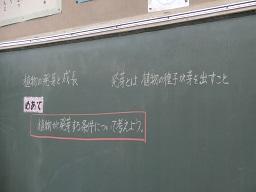 植物の発芽と成長
発芽とは 植物の種子が芽を出すこと
めあて
植物が発芽する条件について考えよう。